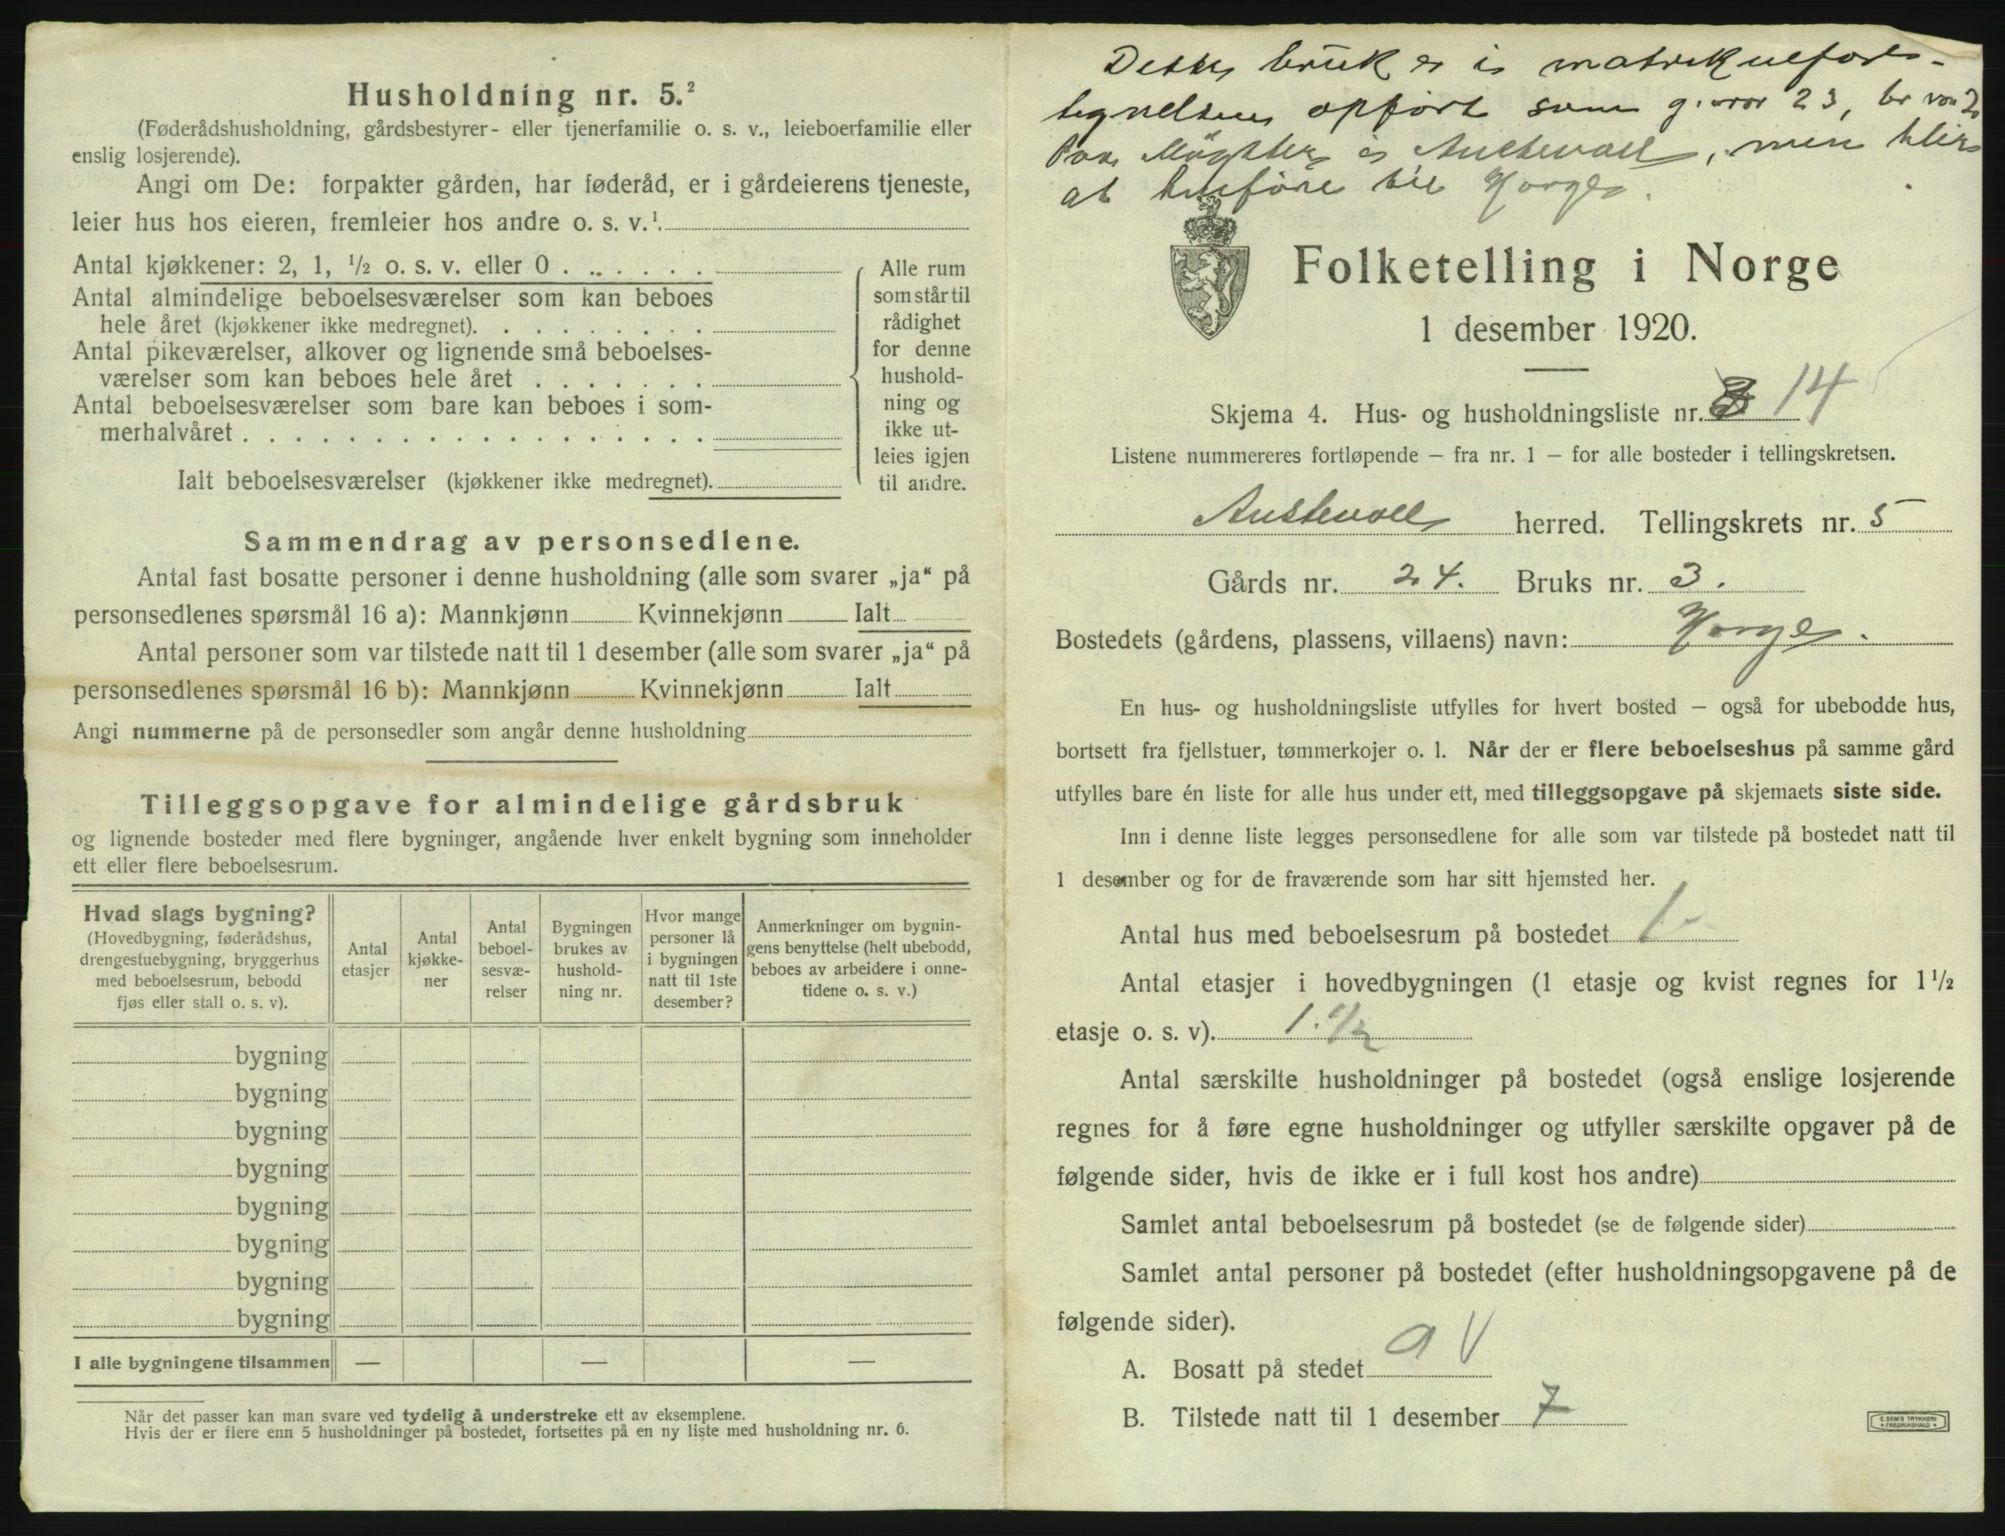 Husholdning nr. 5.²
(Føderådshusholdning, gårdsbestyrer- eller tjenerfamilie o. s. v., leieboerfamilie eller
enslig losjerende).
Angi om De: forpakter gården, har føderåd, er i gårdeierens tjeneste,
leier hus hos eieren, fremleier hos andre o. s. v.¹
Antal kjøkkener: 2, 1, ½ o. s. v. eller 0 . . . . . . .
Antal almindelige beboelsesværelser som kan beboes
hele året (kjøkkener ikke medregnet). . . . . . . . .
Antal pikeværelser, alkover og lignende små beboelses-
værelser som kan beboes hele året . . . . . . .
Antal beboelsesværelser som bare kan beboes i som-
merhalvåret . . . . . . . . . . . . . . . . . .
Ialt beboelsesværelser (kjøkkener ikke medregnet).
Alle rum
som står til
rådighet
for denne
hushold-
ning og
ikke ut-
leies igjen
til andre.
Sammendrag av personsedlene.
Antal fast bosatte personer i denne husholdning (alle som svarer „ja“ på
personsedlenes spørsmål 16 a): Mannkjønn Kvinnekjønn Ialt
Antal personer som var tilstede natt til 1 desember (alle som svarer „ja“ på
personsedlenes spørsmål 16 b): Mannkjønn Kvinnekjønn Ialt
Angi nummerne på de personsedler som angår denne husholdning
Tilleggsopgave for almindelige gårdsbruk
og lignende bosteder med flere bygninger, angående hver enkelt bygning som inneholder
ett eller flere beboelsesrum.
Hvad slags bygning?
(Hovedbygning, føderådshus,
drengestuebygning, bryggerhus
med beboelsesrum, bebodd
fjøs eller stall o. s. v).
Antal
etasjer
Antal
kjøkke-
ner
Antal
beboel-
sesvæ-
relser
Bygningen
brukes av
hushold-
ning nr.
Hvor mange
personer lå
i bygningen
natt til 1ste
desember?
Anmerkninger om bygnin-
gens benyttelse (helt ubebodd,
beboes av arbeidere i onne-
tidene o. s. v.)
bygning
bygning
bygning
bygning
bygning
bygning
bygning
bygning
I alle bygningene tilsammen — — —
Når det passer kan man svare ved tydelig å understreke ett av eksemplene.
Hvis der er flere enn 5 husholdninger på bostedet, fortsettes på en ny liste med husholdning nr. 6.
Dette bruk er i matrikulfor-
tegnelsen opført som g. nr 23, br nr 2
Møgster i Austevoll, men blir
at henføre til Horge.
Folketelling i Norge
1 desember 1920.
Skjema 4. Hus- og husholdningsliste nr. 14
Listene nummereres fortløpende – fra nr. 1 – for alle bosteder i tellingskretsen.
Austevoll herred. Tellingskrets nr. 5
Gårds nr. 24. Bruks nr. 3.
Bostedets (gårdens, plassens, villaens) navn: Horge.
En hus- og husholdningsliste utfylles for hvert bosted – også for ubebodde hus,
bortsett fra fjellstuer, tømmerkojer o. l. Når der er flere beboelseshus på samme gård
utfylles bare én liste for alle hus under ett, med tilleggsopgave på skjemaets siste side.
Inn i denne liste legges personsedlene for alle som var tilstede på bostedet natt til
1 desember og for de fraværende som har sitt hjemsted her.
Antal hus med beboelsesrum på bostedet 1
Antal etasjer i hovedbygningen (1 etasje og kvist regnes for 1½
etasje o. s. v). 1.½
Antal særskilte husholdninger på bostedet (også enslige losjerende
regnes for å føre egne husholdninger og utfyller særskilte opgaver på de
følgende sider, hvis de ikke er i full kost hos andre)
Samlet antal beboelsesrum på bostedet (se de følgende sider)
Samlet antal personer på bostedet (efter husholdningsopgavene på de
følgende sider).
A. Bosatt på stedet 9 V
B. Tilstede natt til 1 desember 7
E. SEM'S TRYKKERI
FREDRIKSHALD